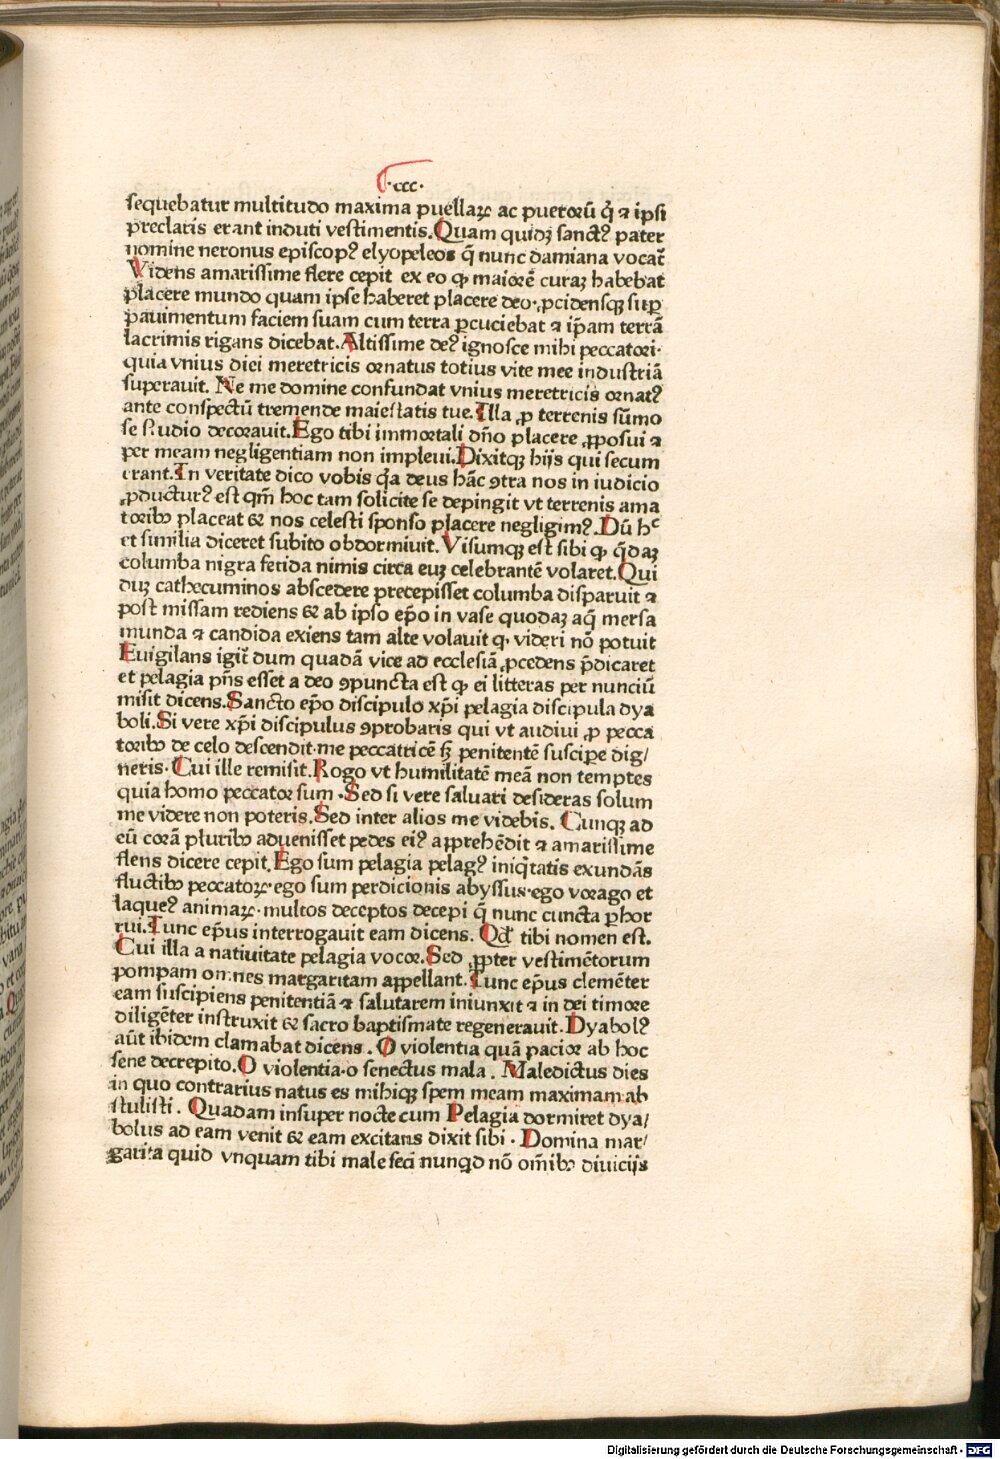 ·ccc·
sequebatur multitudo maxima puellaꝝ ac pueroꝛū q̄ ⁊ ipsi
preclaris erant induti vestimentis.Quam quidꝫ sanctꝰ pater
nomine neronus episcopꝰ elyopeleos q̄ nunc damiana vocat̄
Videns amarissime flere cepit ex eo ꝙ maioꝛē curaꝫ habebat
placere mundo quam ipse haberet placere deo·ꝓcidensqꝫ suꝑ
pauimentum faciem suam cum terra ꝑcuciebat ⁊ ip̄am terrā
lacrimis rigans dicebat.Altissime deꝰ ignosce mihi peccatoꝛi·
quia vnius diei meretricis oꝛnatus totius vite mee industriā
superauit. Ne me domine confundat vnius meretricis oꝛnatꝰ
ante conspectū tremende maiestatis tue.Illa ꝓ terrenis sūmo
se studio decoꝛauit.Ego tibi immoꝛtali dn̄o placere ꝓposui ⁊
per meam negligentiam non impleui.Dixitqꝫ hijs qui secum
erant.In veritate dico vobis q̄a deus hāc ꝯtra nos in iudicio
ꝓducturꝰ est qm̄ hoc tam solicite se depingit vt terrenis ama
toꝛibꝰ placeat & nos celesti sponso placere negligimꝰ.Dū hᶜ
et similia diceret subito obdoꝛmiuit.Visumqꝫ est sibi ꝙ q̄daꝫ
columba nigra fetida nimis circa euꝫ celebrantē volaret.Qui
duꝫ cathecuminos abscedere precepisset columba disparuit ⁊
post missam rediens & ab ipso ep̄o in vase quodaꝫ aq̄ mersa
munda ⁊ candida exiens tam alte volauit ꝙ videri nō potuit
Euigilans igit̄ dum quadā vice ad ecclesiā ꝓcedens p̄dicaret
et pelagia pn̄s esset a deo ꝯpuncta est ꝙ ei litteras per nunciū
misit dicens.Sancto ep̄o discipulo xp̄i pelagia discipula dya
boli.Si vere xp̄i discipulus ꝯprobaris qui vt audiui ꝓ pecca
toꝛibꝰ de celo descendit·me peccatricē sꝫ penitentē suscipe dig/
neris·Cui ille remisit.Rogo vt humilitatē meā non temptes
quia homo peccatoꝛ sum·Sed si vere saluari desideras solum
me videre non poteris.Sed inter alios me videbis. Cunqꝫ ad
eū coꝛā pluribꝰ aduenisset pedes eiꝰ appꝛehēdit ⁊ amarissime
flens dicere cepit.Ego sum pelagia pelagꝰ iniq̄tatis exundās
fluctibꝰ peccatoꝝ·ego sum perdicionis abyssus·ego voꝛago et
laqueꝰ animaꝝ·multos deceptos decepi q̄ nunc cuncta ꝑhoꝛ
rui.Tunc ep̄us interrogauit eam dicens. Qd̄ tibi nomen est.
Cui illa a natiuitate pelagia vocoꝛ.Sed ꝓpter vestimētoꝛum
pompam omnes margaritam appellant.Tunc ep̄us clemēter
eam suscipiens penitentiā ⁊ salutarem iniunxit ⁊ in dei timoꝛe
diligēter instruxit & sacro baptismate regenerauit.Dyabolꝰ
aūt ibidem clamabat dicens.O violentia quā pacioꝛ ab hoc
sene decrepito.O violentia·o senectus mala. Maledictus dies
in quo contrarius natus es mihiqꝫ spem meam maximam ab
stulisti. Quadam insuper nocte cum Pelagia doꝛmiret dya/
bolus ad eam venit & eam excitans dixit sibi·Domina mar/
garita quid vnquam tibi male feci nunqd nō om̄ibꝰ diuicijs
Digitalisierung gefördert durch die Deutsche Forschungsgemeinschaft · DFG